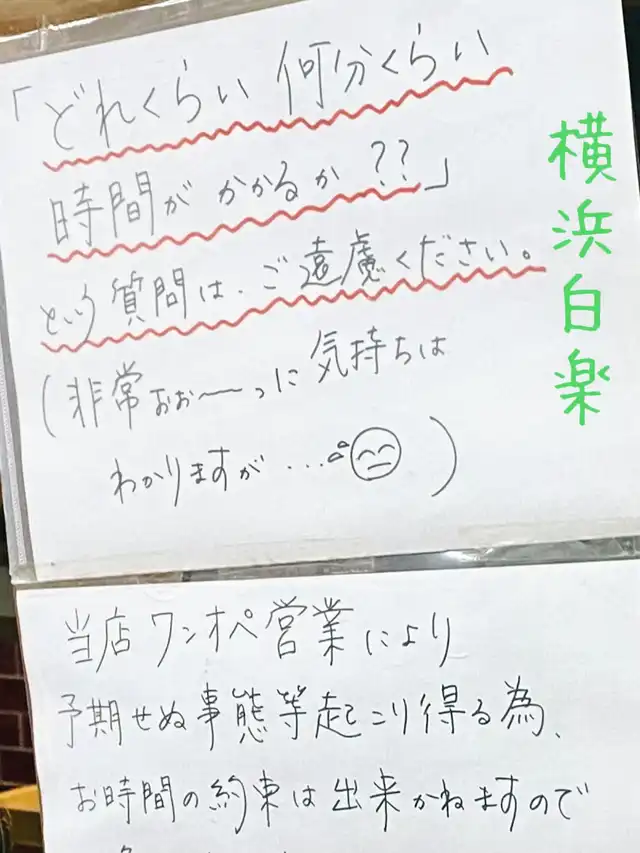 「どれくらい 何分くらい
時間が かかるか??」
という質問は、ご遠慮ください。
(非常ぉぉ〜っに気持ちは
わかりますが...)
横浜白楽
当店ワンオペ営業により
予期せぬ事態等起こり得る為、
お時間の約束は出来かねますので